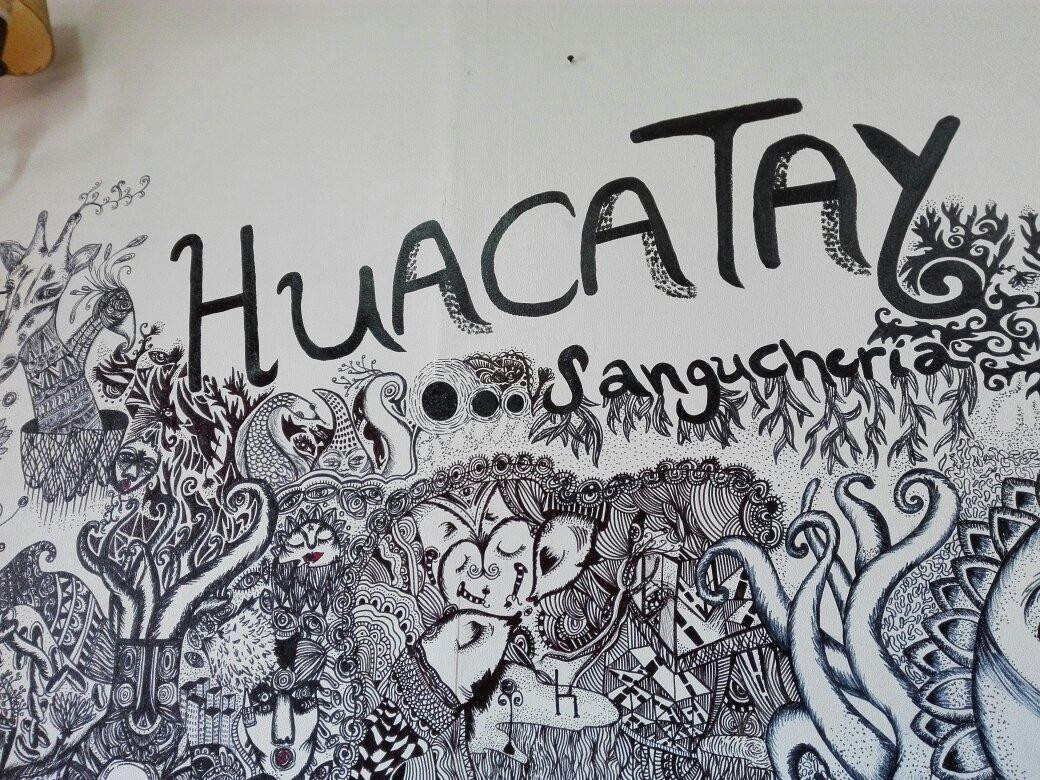 HUACATAY
Sangucheria